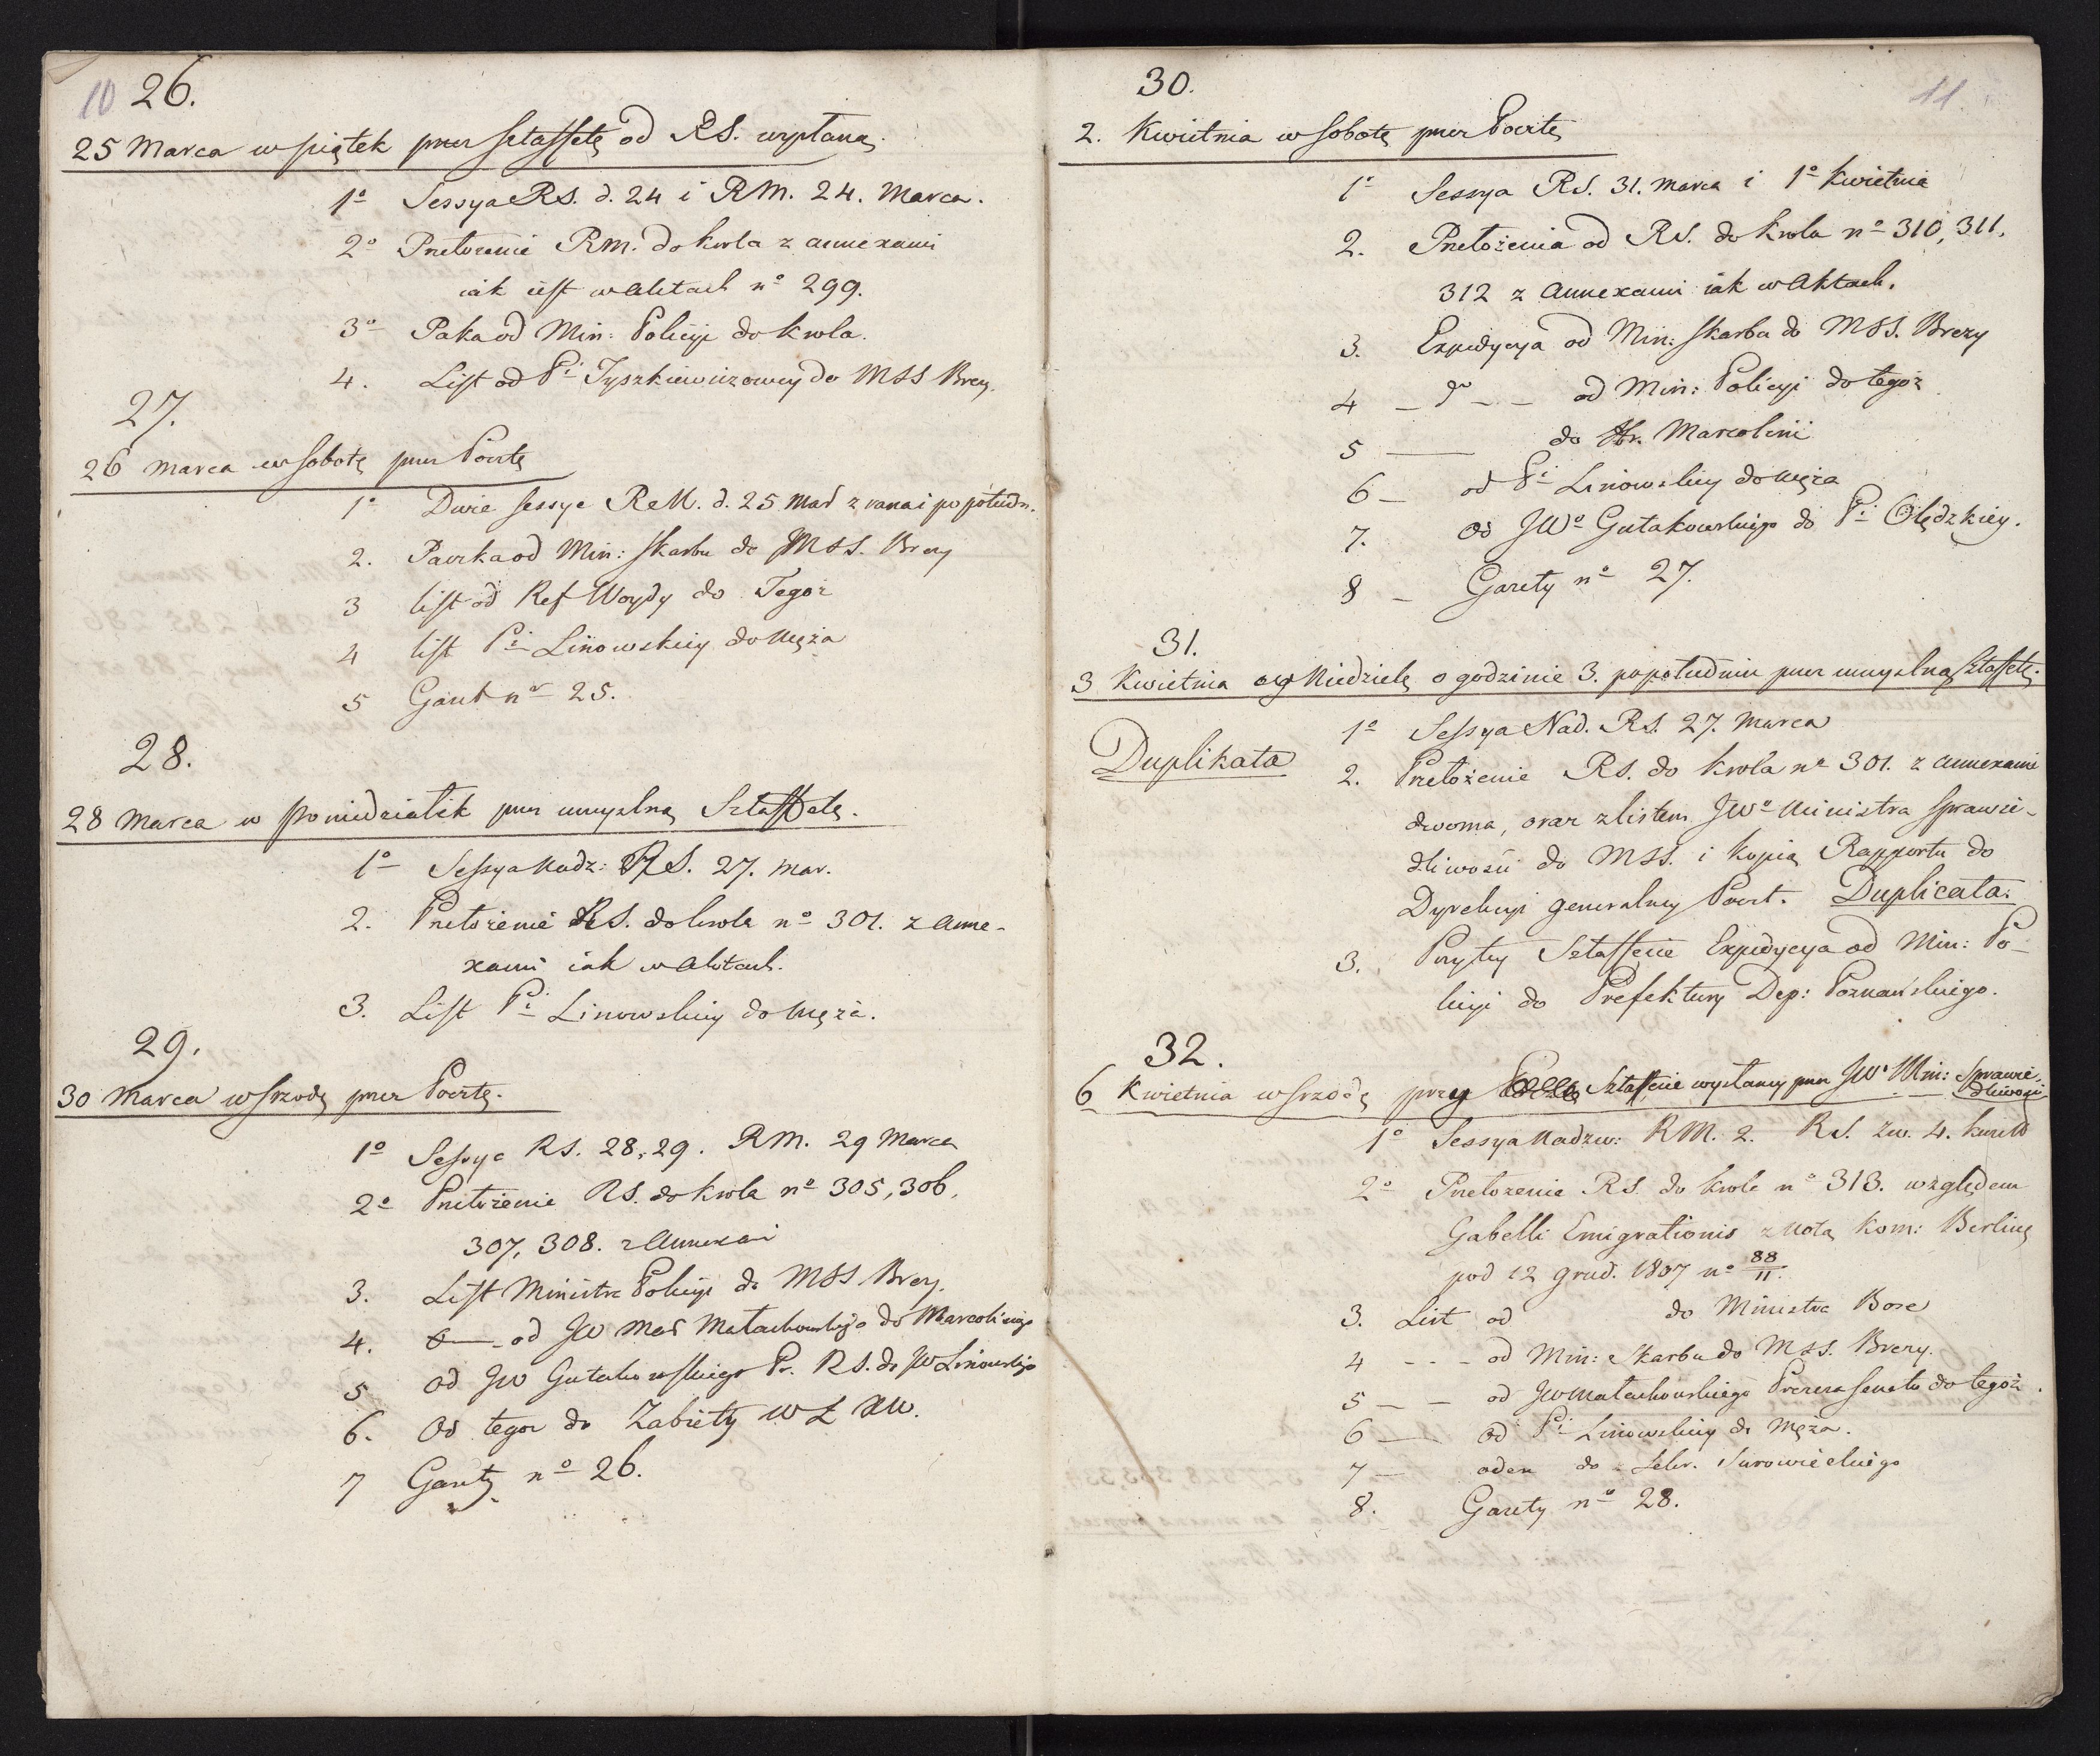 10 26.
25 Marca w piątek przez sztaffetę od RS. wysłaną.
1o Sessya RS. d. 24 i RM. 24. Marca.
2o Przełozenie RM. do Krola z annexami
iak iest w Aktach no 299.
3o Paka od Min: Policyi do Krola.
4. List od Pi Tyszkiewiczowey do MSS Brezy.
27.
26 Marca w sobotę przez Pocztę
1o Dwie sessye RM. d. 25 Mar z rana i po połudn.
2. Paczka od Min: Skarbu do MSS. Brezy
3 list od Ref Woydy do Tegoż
4 list Pi Linowskiey do Męża
5 Gazet no 25.
28.
28 Marca w Poniedziałek przez umyslną Sztaffetę.
1o Sessya Nadz: RS. 27. Mar.
2. Przełożenie RS. do Krola no 301. z anne-
xami iak w Aktach.
3. List Pi Linowskiey do Męża.
29.
30 Marca w Srzodę przez Pocztę.
1o Sessye RS. 28, 29. RM. 29 Marca
2o Przełożenie RS. do Krola no 305, 306,
307, 308. z Annexami
3. List Ministra Policyi do MSS Brezy.
4. od JW Mar Małachowskiego do Marcoliniego
5 od JW Gutakowskiego Pr. RS. do JW Linowskiego
6. Od tegoż do Zabiełły WŁ XW.
7 Gazety no 26.
30. 11.
2. Kwietnia w sobotę przez Pocztę
1o Sessya RS. 31. Marca i 1o Kwietnia
2. Przełożenia od RS. do Krola no 310, 311,
312 z annexami iak w Aktach.
3. Expedycya od Min: Skarbu do MSS. Brezy
4 – do – – od Min: Policyi do tegoż
5 —— do Hr. Marcolini
6 – od Pi Linowskiey do Męża
7. od JWo Gutakowskiego do Pi Olędzkiey.
8 – Gazety no 27.
31.
3 Kwietnia w Niedzielę o godzinie 3. popołudniu przez umyslną Sztafetę.
Duplikata
1o Sessya Nad. RS. 27. Marca
2. Przełożenie RS. do Krola no 301. z annexami
dwoma, oraz z listem JWo Ministra Sprawie-
dliwosci do MSS. i kopią Rapportu do
Dyrekcyi generalney Poczt. Duplicata.
3. Przy tey Sztaffecie Expedycya od Min: Po-
licyi do Prefektury Dep: Poznańskiego.
32.
6 Kwietnia w Srzodę przy Sztaffecie wysłaney przez JWo Min: Sprawie-
dliwosci
1o Sessya Nadzw: RM. 2. RS. zw. 4. Kwiet
2o Przełozenie RS. do Krola no 313. względem
Gabelli Emigrationis z Notą Kom: Berling
pod 12 grud. 1807 no 88/11.
3. List od do Ministra Bose
4 - - - od Min: Skarbu do MSS. Brezy.
5 – – od JW Małachowskiego Prezesa Senatu do tegoż.
6 —— od Pi Linowskiey do Męża.
7 – do Sekr. Surowieckiego
8. Gazety no 28.